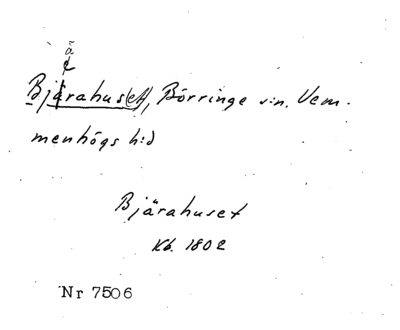 ä
Bjärahus(et), Börringe s:n. Vem-
menhögs h:d
Bjärahuset
Kb. 1802
Nr 7506